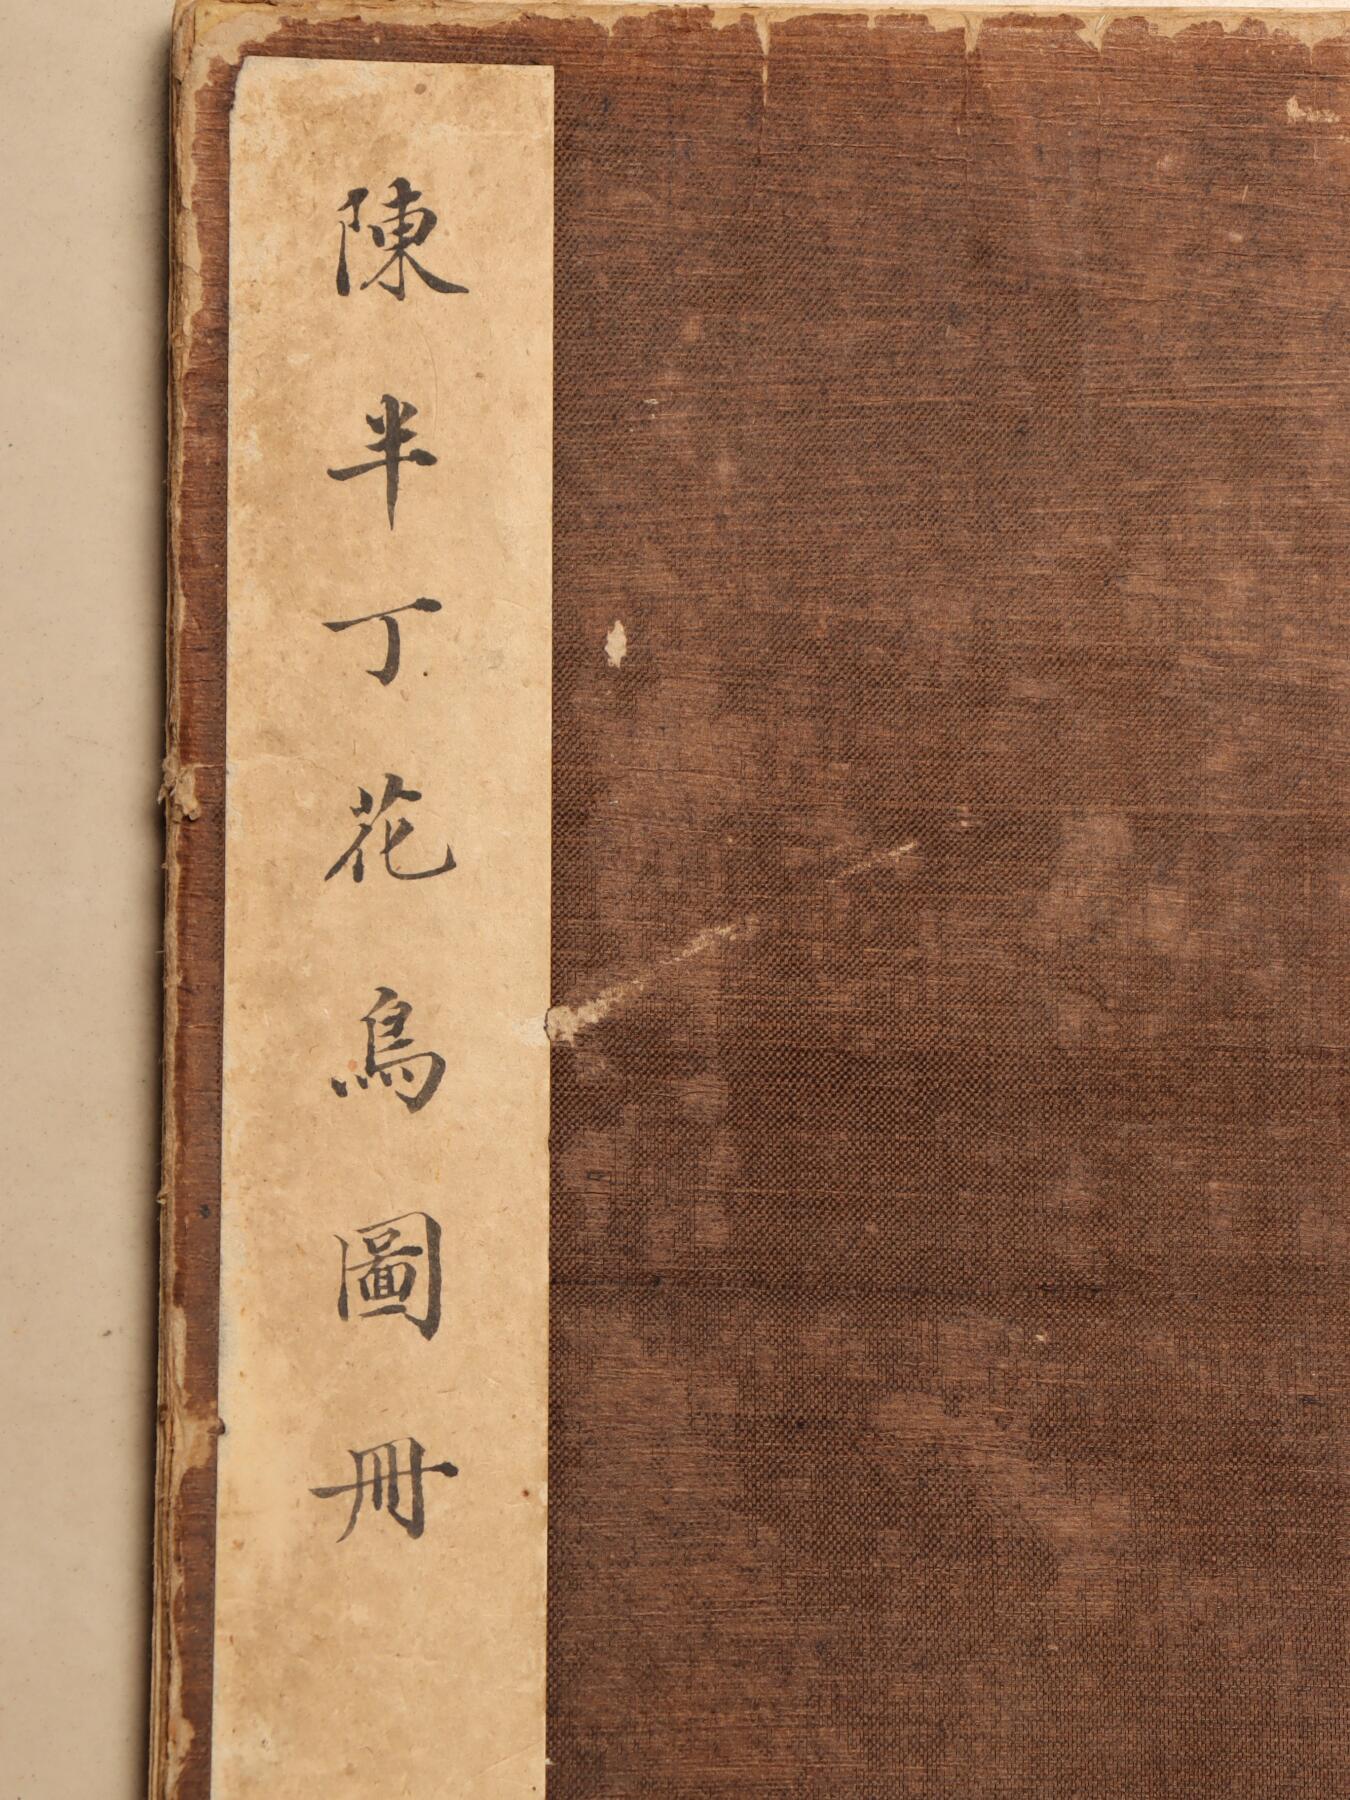 陳半丁花鳥圖冊